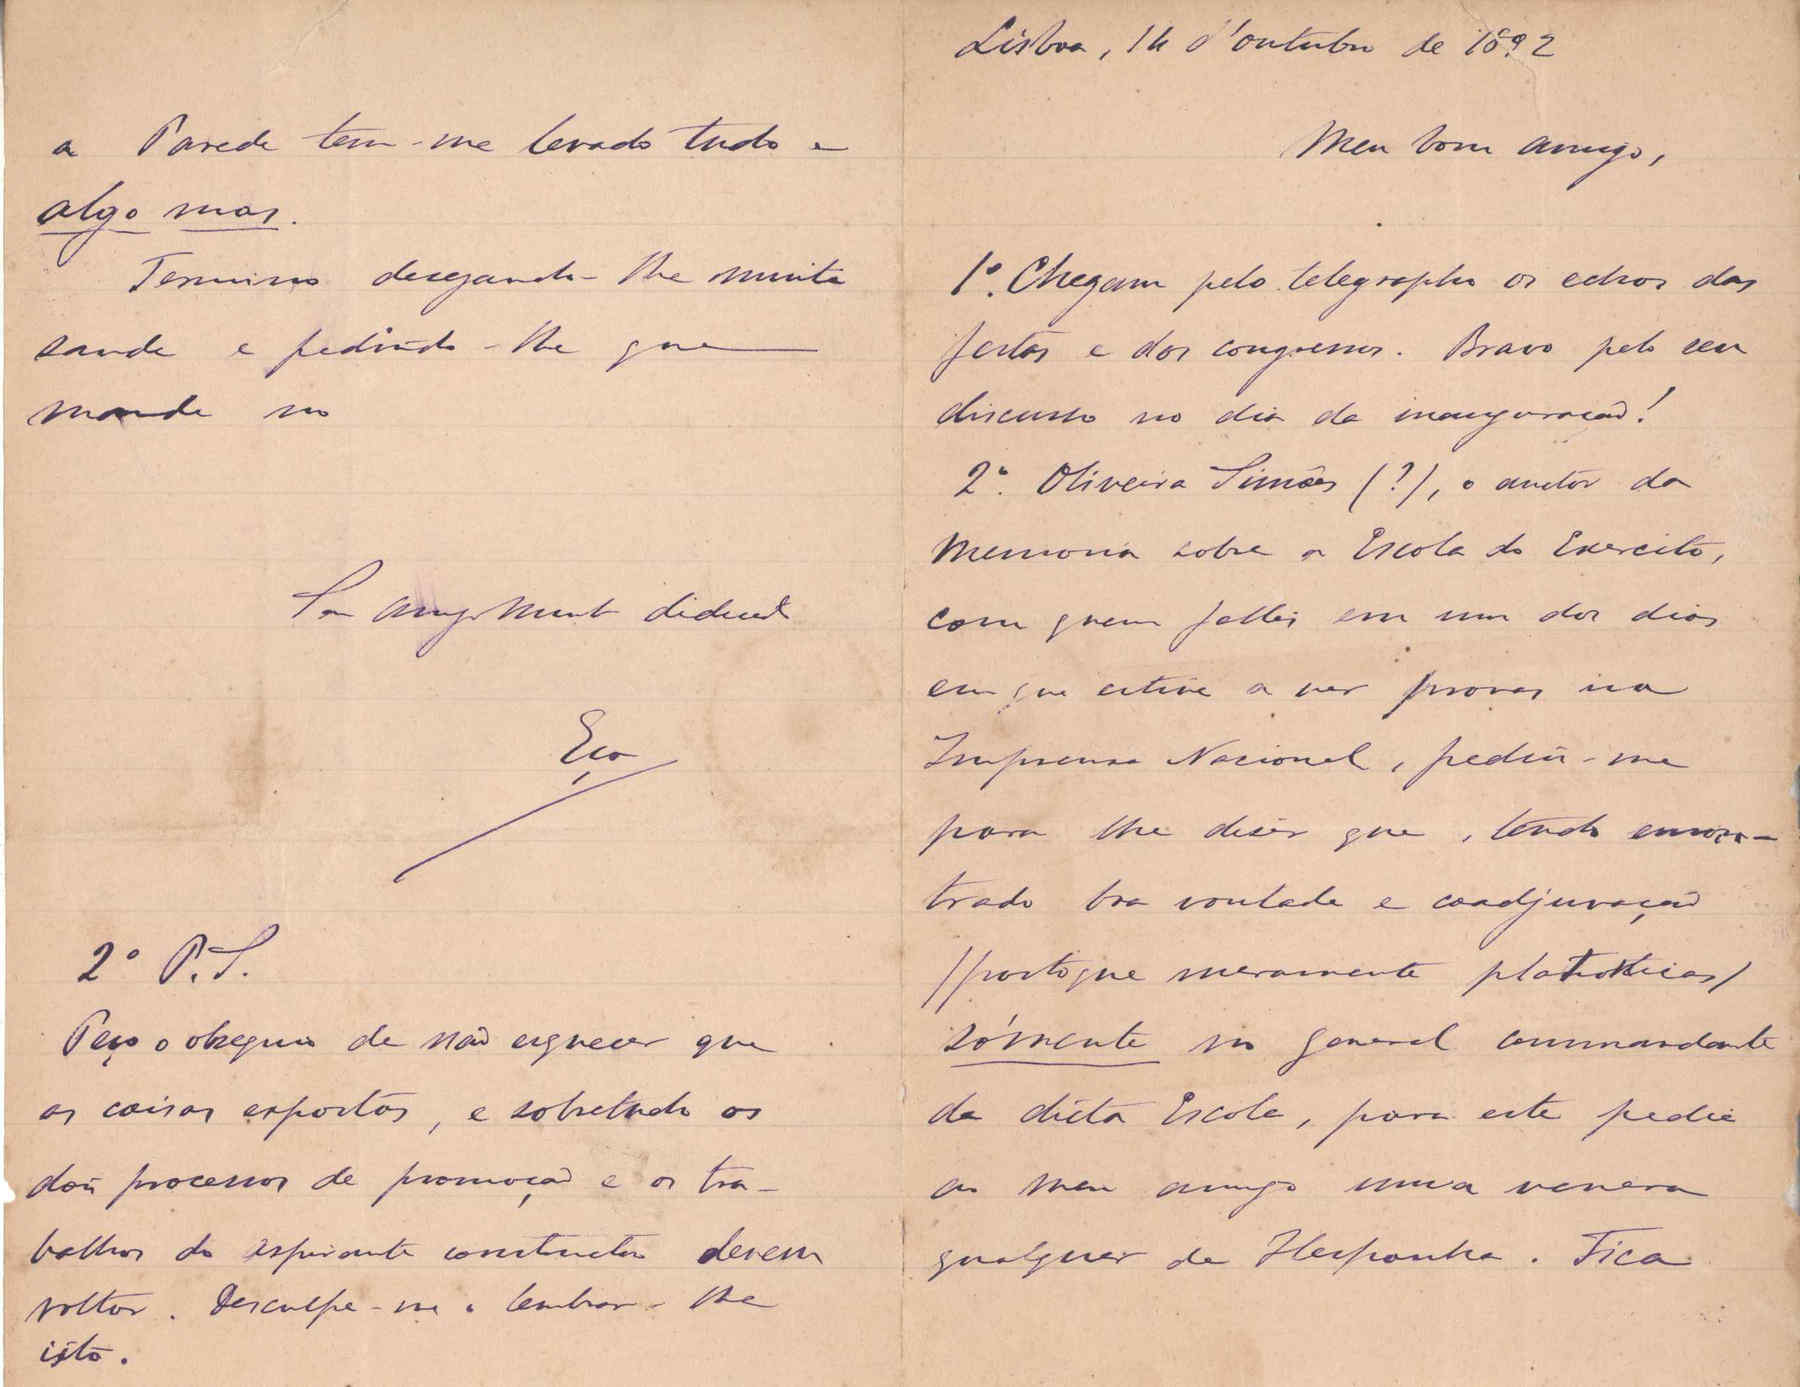 Lisboa, 14 d'outubro de 1892
Meu bom amigo,
1º. Chegam pelo telegrapho os echos das
festas e dos congressos. Bravo pelo seu
discurso no dia da inauguração!
2º. Oliveira Simões (?), o auctor da
Memoria sobre a Escola do Exercito,
com quem fallei em um dos dias
em que estive a ver provas na
Imprensa Nacional, pediu-me
para lhe diser que, tendo encon-
trado boa vontade e coadjuvação
(posto que meramente platonicas)
sómente no general commandante
da dicta Escola, para este pedia
ao meu amigo uma venera
qualquer de Hespanha. Fica
a Parede tem-me levado tudo e
algo mas.
Termino desejando-lhe muita
saude e pedindo-lhe que
mande no
Seu amigo muito dedicado
Eça
2º P.S.
Peço o obsequio de não esquecer que
as coisas expostas, e sobretudo os
dois processos de promoção e os tra-
balhos do aspirante constructor devem
voltar. Desculpe-me o lembrar-lhe
isto.